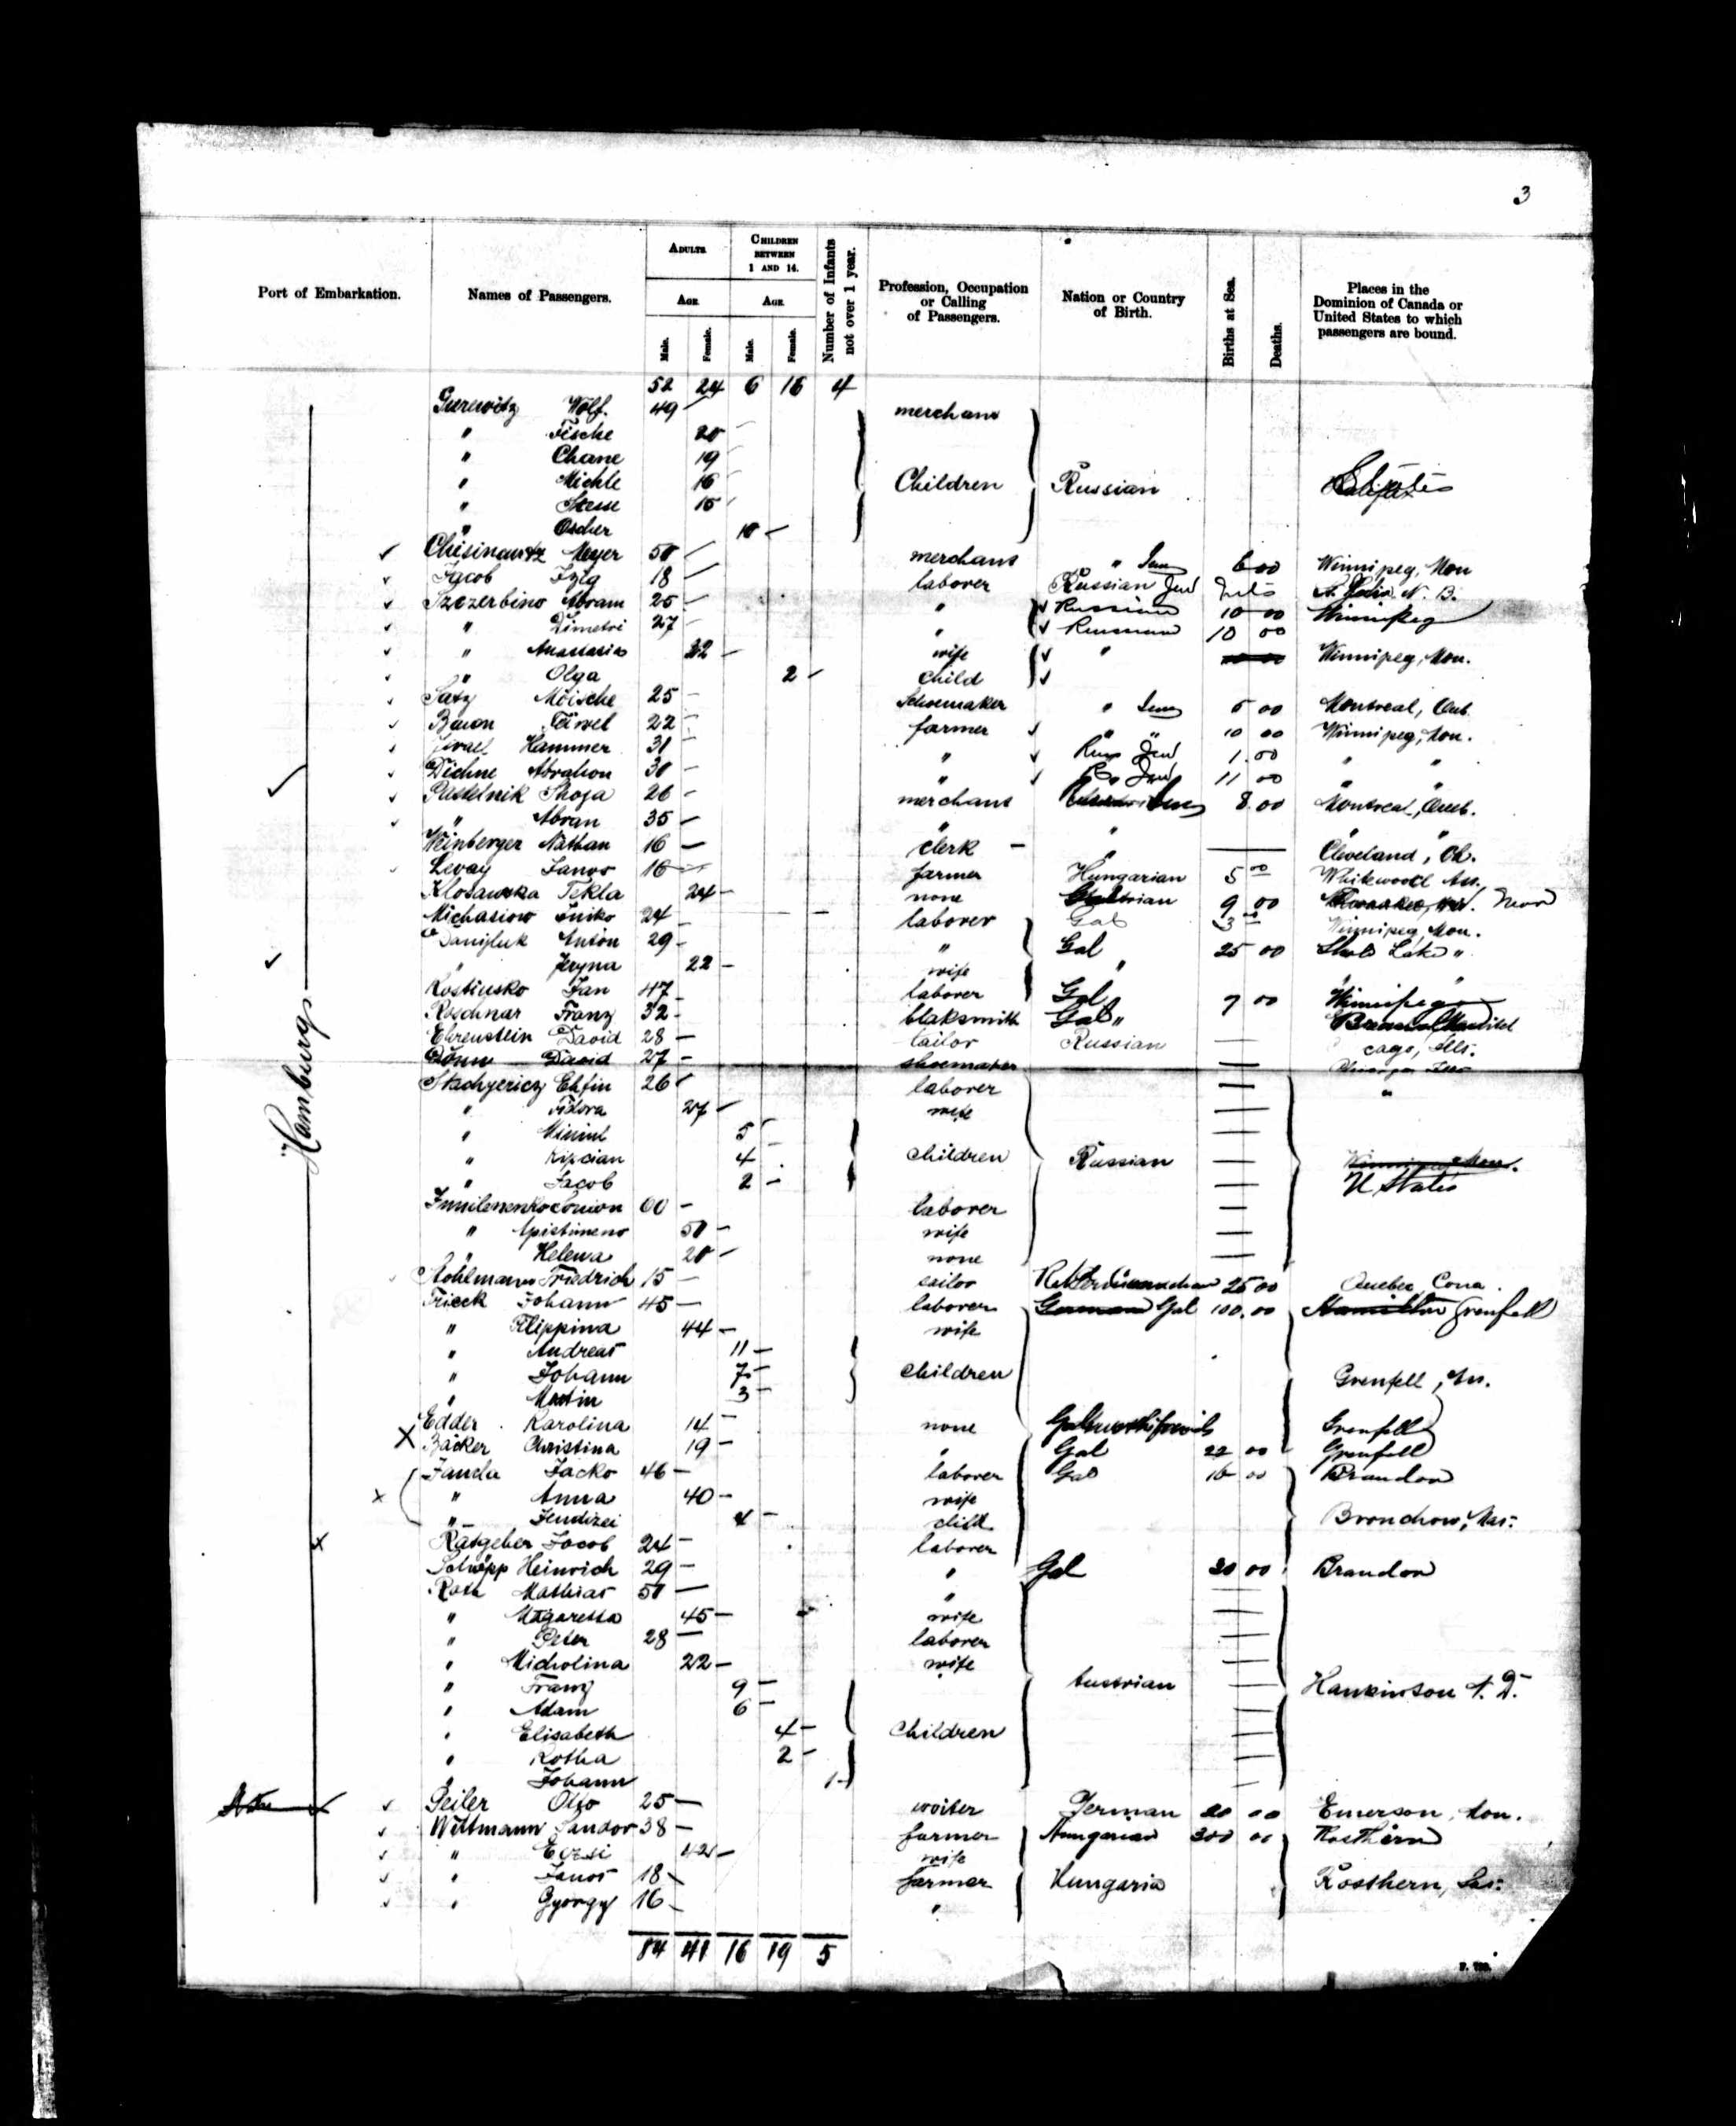 3
Port of Embarkation. Names of Passengers. Adults. Age. Male. Female. Children between 1 and 14. Age. Male. Female. Number of Infants not over 1 year. Profession, Occupation or Calling of Passengers. Nation or Country of Birth. Births at Sea. Deaths. Places in the Dominion of Canada or United States to which passengers are bound.
Hamburg
52 24 6 16 4
Gurewitz Wolf. 49 merchant
" Fische 20
" Chane 19
" Michle 16 Children Russian
" 15
" Oscher 10
Meyer 50 merchant " 6 00 Winnipeg, Man
Jacob Izig 18 laborer Russian Jew N. B.
Szczerbino Abram 25 " Russian 10 00 Winnipeg
" Dimetri 27 " Russian 10 00
" Anastasia 22 wife " Winnipeg, Man.
" Olga 2 child
Satz Moische 25 Schoemaker " 5 00 Montreal, Qub.
Baron 22 farmer " " 10 00 Winnipeg, Man.
Israel Hammer 31 " Russ Jew 1.00 " "
Dichne Abrahon 30 " Jew 11 00 " "
Pastelnik 26 merchant 8.00 Montreal, Queb.
" Abran 35 " " " "
Weinberger Nathan 16 clerk " Cleveland, Oh.
Levay Janos 16 farmer Hungarian 5 00 Whitewood Ass.
Tekla 24 none 9 00
Michasiow 24 laborer Gal 3 00 Winnipeg, Man.
Danijluk Anton 29 " Gal 25 00 Lake "
" Jeryna 22 wife " " "
Kostiusko Jan 47 laborer Gal 7 00 Winnipeg
Roschnar Franz 32 blaksmith Gal "
Ehrenstein David 28 tailor Russian cago, Ills.
David 27 shoemaker
26 laborer "
" Fidora 27 wife
" 5
" 4 children Russian Winnipeg Man.
" Jacob 2 U States
60 laborer
" 50 wife
" Helena 20 none
Stohlmann Friedrich 15 sailor 25 00 Quebec, Cona.
Frieck Johann 45 laborer German Gal 100.00 Hamilton Grenfell
" Filippina 44 wife
" Andreas 11
" Johann 7 children Grenfell, Ass.
" Martin 3
Edder Karolina 14 none Grenfell
Bäcker Christina 19 " Gal 22 00 Grenfell
Janda Jacko 46 laborer Gal 16 00 Brandon
" Anna 40 wife
" 4 child
Rätgeber Jacob 24 laborer
Schöpp Heinrich 29 " Gal 20 00 Brandon
Roth Mathias 50 "
" Magaretta 45 wife
" Peter 28 laborer
" Micholina 22 wife
" Franz 9 Austrian Hankinson N. D.
" Adam 6
" Elisabeth 4 Children
" Rotha 2
" Johann 1
Otto 25 German 20 00 Emerson, Man.
Wittmann Sandor 38 farmer Hungarian 300 00 Rosthern
" 42 wife
" Janos 18 farmer Hungaria Rosthern, Sas:
" Gyorgy 16 "
84 41 16 19 5